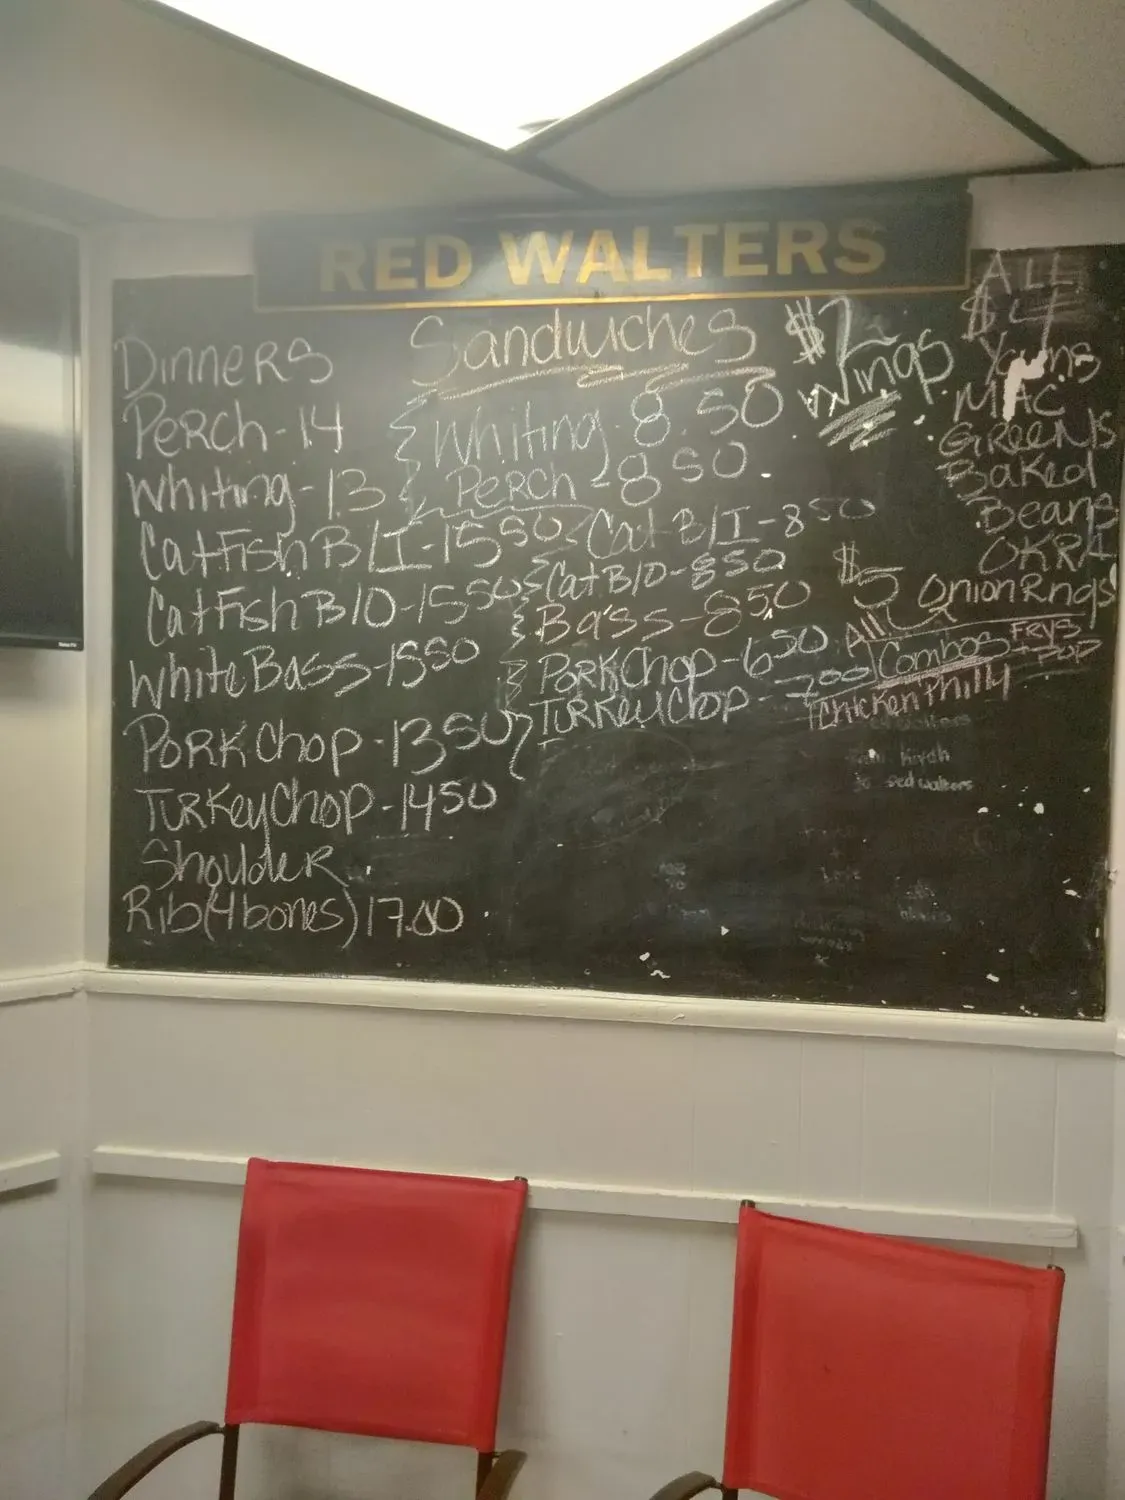 RED WALTERS
Dinners
Perch - 14
Whiting - 13
CatFish B/I - 15 50
CatFish B/O - 15 50
White Bass - 15 50
Pork Chop - 13 50
Turkey Chop - 14 50
Shoulder
Rib (4 bones) 17.00
Sandwiches
Whiting - 8.50
Perch - 8 50
Cat B/I - 8 50
Cat B/O - 8 50
Bass - 8 50
Pork Chop - 6 50
Turkey Chop - 7 00
$2
Wings
ALL
$4
MAC
GREENS
Baked
Beans
OKRA
Onion Rngs
$5
All
Combos Frys + Pop
Chicken Philly
red walters